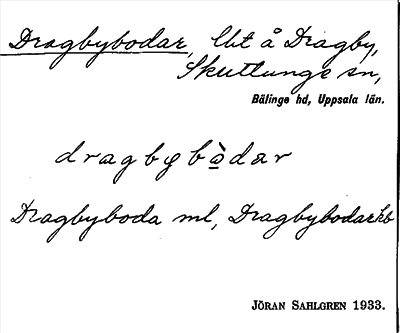 Dragbybodar, lht å Dragby,
Skuttunge sn,
Bälinge hd, Uppsala län.
dragbybò̲dar
Dragbyboda ml, Dragbybodar kb
JÖRAN SAHLGREN 1933.